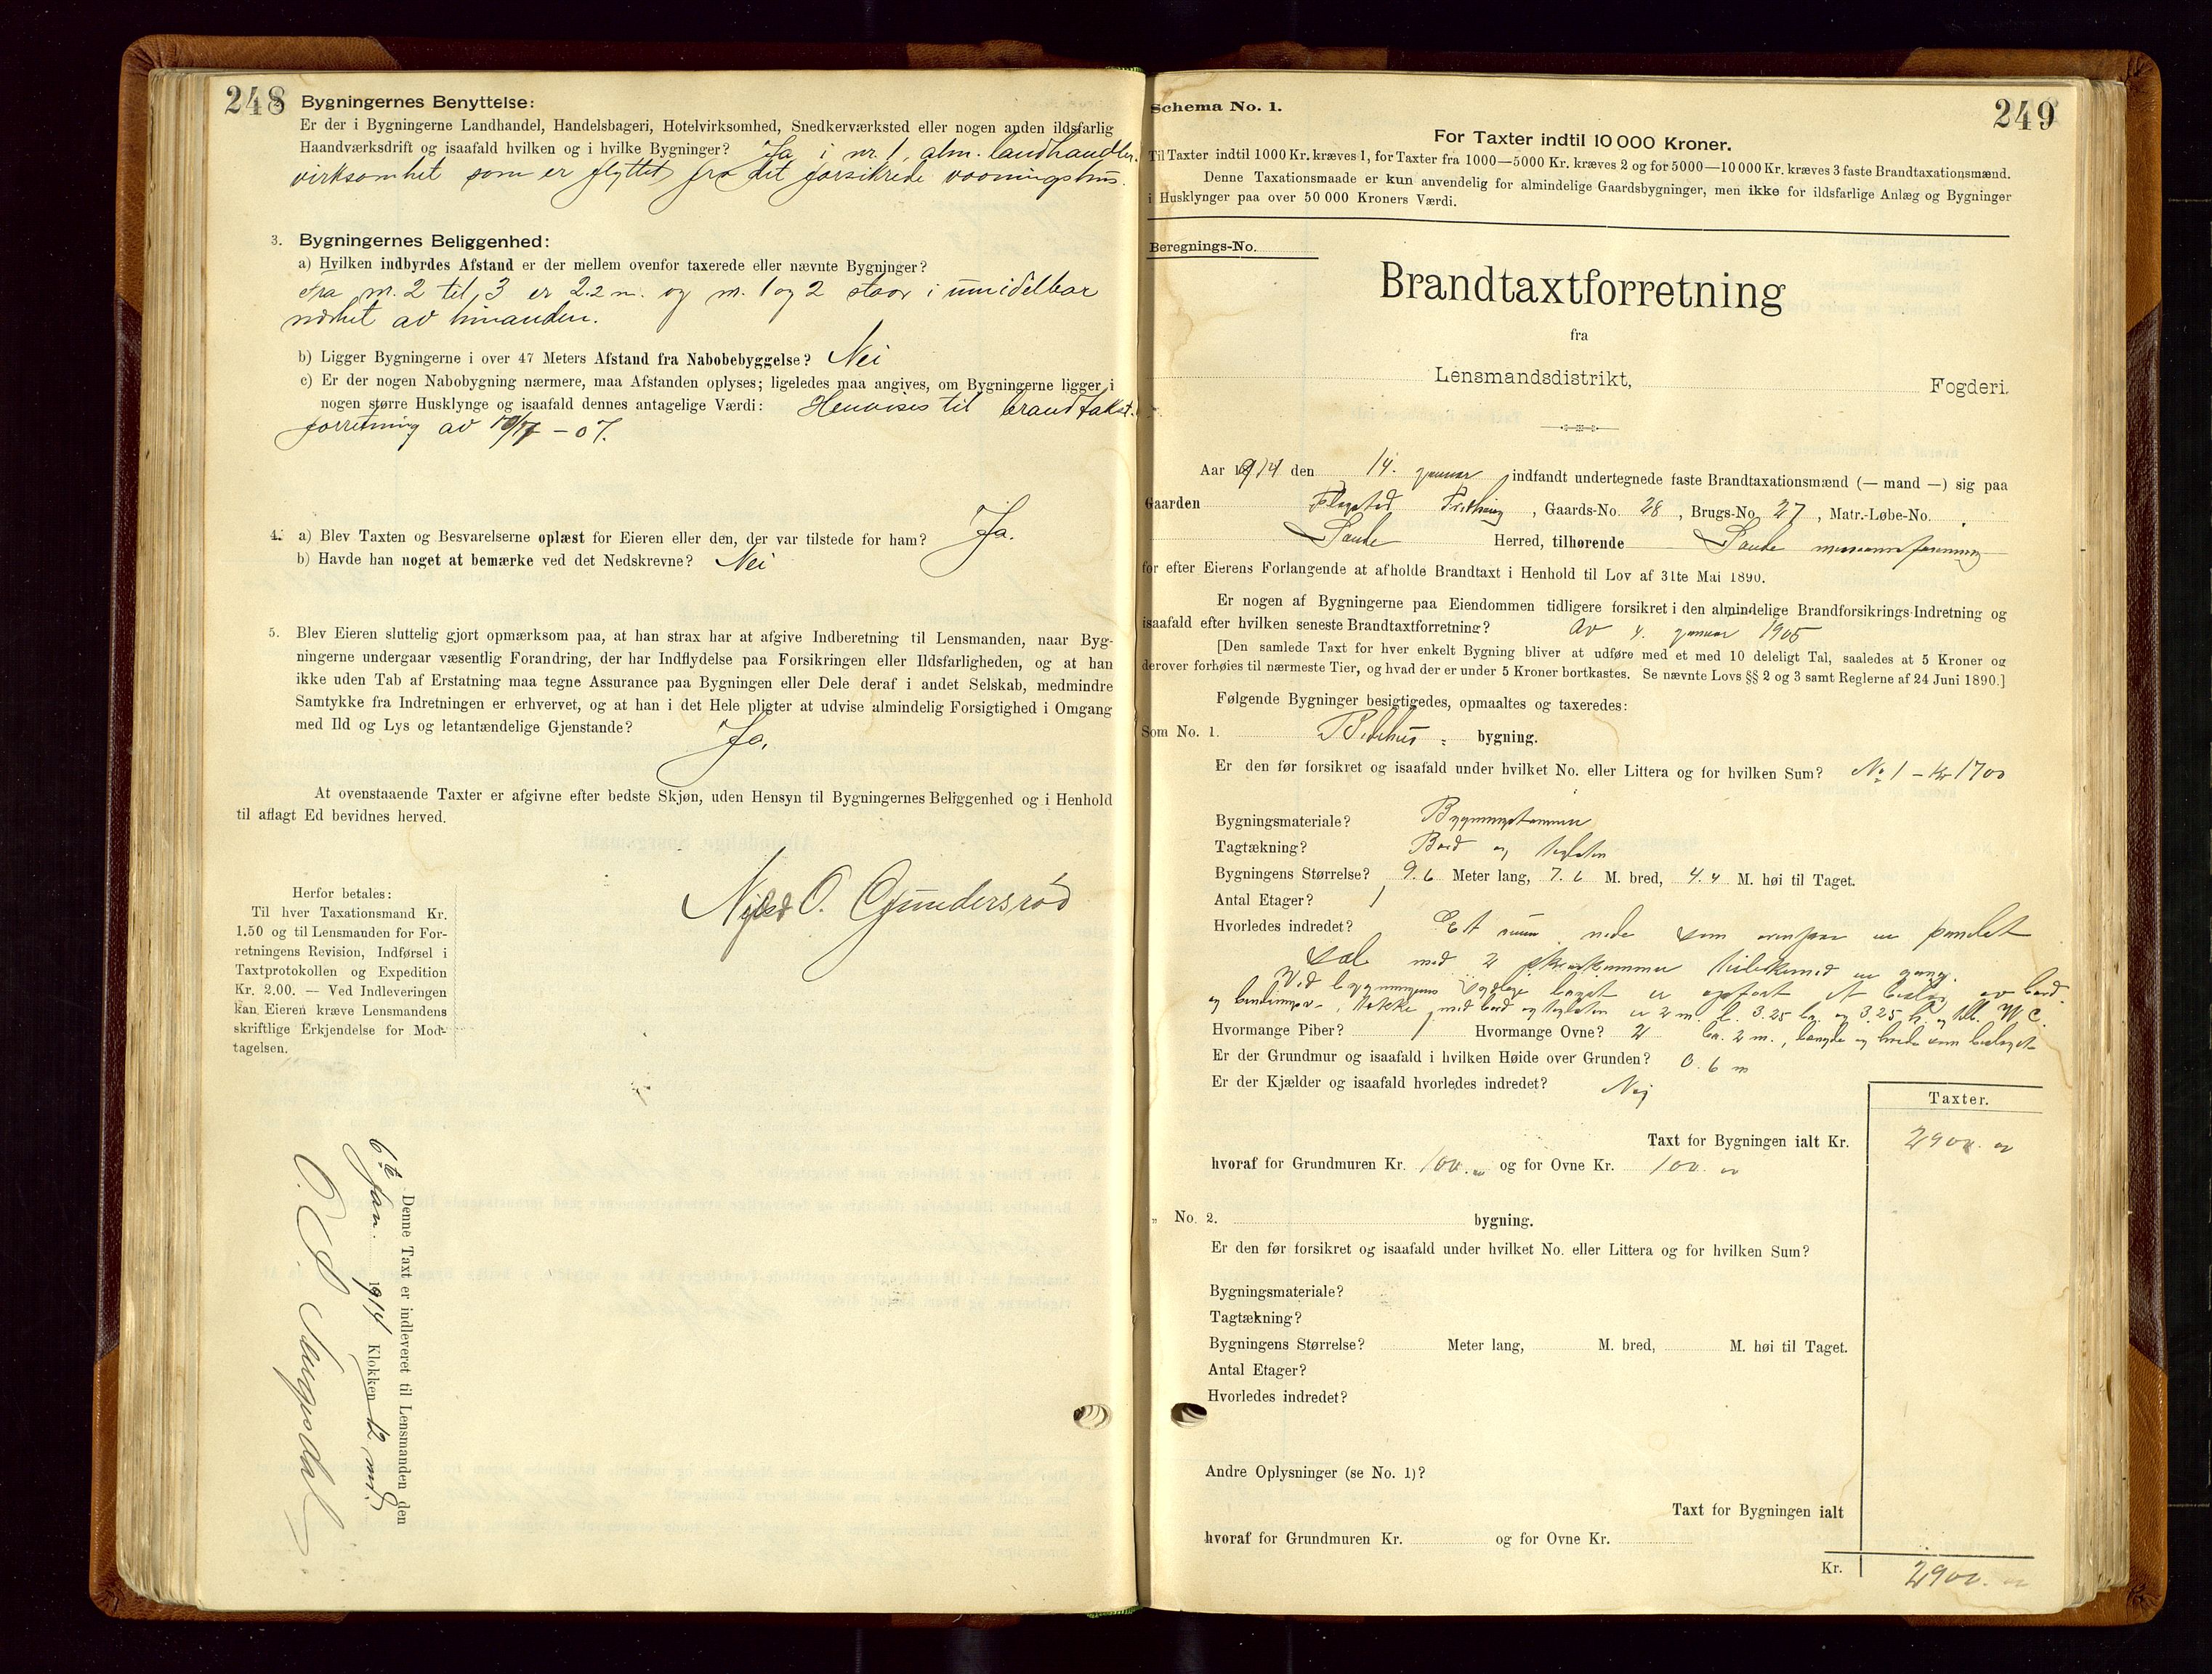 248
Bygningernes Benyttelse:
Er der i Bygningerne Landhandel, Handelsbageri, Hotelvirksomhed, Snedkerværksted eller nogen anden ildsfarlig
Haandværksdrift og isaafald hvilken og i hvilke Bygninger? Ja i nr. 1, alm. landhandler
virksomhet som er flyttet fra det forsikrede vooningshus.
3. Bygningernes Beliggenhed:
a) Hvilken indbyrdes Afstand er der mellem ovenfor taxerede eller nævnte Bygninger?
Fra nr. 2 til 3 er 2.2 m. og nr. 1 og 2 staar i umidelbar
nærhet av hinanden.
b) Ligger Bygningerne i over 47 Meters Afstand fra Nabobebyggelse? Nei
c) Er der nogen Nabobygning nærmere, maa Afstanden oplyses; ligeledes maa angives, om Bygningerne ligger i
nogen større Husklynge og isaafald dennes antagelige Værdi: Henvises til brandtakst.
forretning av - 07.
4. a) Blev Taxten og Besvarelserne oplæst for Eieren eller den, der var tilstede for ham? Ja.
b) Havde han noget at bemærke ved det Nedskrevne? Nei
5. Blev Eieren sluttelig gjort opmærksom paa, at han strax har at afgive Indberetning til Lensmanden, naar Byg-
ningerne undergaar væsentlig Forandring, der har Indflydelse paa Forsikringen eller Ildsfarligheden, og at han
ikke uden Tab af Erstatning maa tegne Assurance paa Bygningen eller Dele deraf i andet Selskab, medmindre
Samtykke fra Indretningen er erhvervet, og at han i det Hele pligter at udvise almindelig Forsigtighed i Omgang
med Ild og Lys og letantændelige Gjenstande? Ja.
At ovenstaaende Taxter er afgivne efter bedste Skjøn, uden Hensyn til Bygningernes Beliggenhed og i Henhold
til aflagt Ed bevidnes herved.
O. Gundersrød
Herfor betales:
Til hver Taxationsmand Kr.
1.50 og til Lensmanden for For-
retningens Revision, Indførsel i
Taxtprotokollen og Expedition
Kr. 2.00. — Ved Indleveringen
kan Eieren kræve Lensmandens
skriftlige Erkjendelse for Mod-
tagelsen.
Denne Taxt er indleveret til Lensmanden den
6te Jan. 1914 Klokken 12 mid.
249
Schema No. 1.
For Taxter indtil 10 000 Kroner.
Til Taxter indtil 1000 Kr. kræves 1, for Taxter fra 1000—5000 Kr. kræves 2 og for 5000—10 000 Kr. kræves 3 faste Brandtaxationsmænd.
Denne Taxationsmaade er kun anvendelig for almindelige Gaardsbygninger, men ikke for ildsfarlige Anlæg og Bygninger
i Husklynger paa over 50 000 Kroners Værdi.
Beregnings-No.
Brandtaxtforretning
fra
Lensmandsdistrikt, Fogderi.
Aar 1914 den 14. januar indfandt undertegnede faste Brandtaxationsmænd (— mand —) sig paa
Gaarden , Gaards-No. 28, Brugs-No. 27, Matr.-Løbe-No.
Saude Herred, tilhørende Saude
for efter Eierens Forlangende at afholde Brandtaxt i Henhold til Lov af 31te Mai 1890.
Er nogen af Bygningerne paa Eiendommen tidligere forsikret i den almindelige Brandforsikrings-Indretning og
isaafald efter hvilken seneste Brandtaxtforretning? Av 4. januar 1905
[Den samlede Taxt for hver enkelt Bygning bliver at udføre med et med 10 deleligt Tal, saaledes at 5 Kroner og
derover forhøies til nærmeste Tier, og hvad der er under 5 Kroner bortkastes. Se nævnte Lovs §§ 2 og 3 samt Reglerne af 24 Juni 1890.]
Følgende Bygninger besigtigedes, opmaaltes og taxeredes:
Som No. 1. Bedehus bygning.
Er den før forsikret og isaafald under hvilket No. eller Littera og for hvilken Sum? No 1 - Kr 1700
Bygningsmateriale? Bygningstømmer
Tagtækning? Bord og
Bygningens Størrelse? 9.6 Meter lang, 7.6 M. bred, 4.4 M. høi til Taget.
Antal Etager? 1
Hvorledes indredet? Et rum nede som ovenpaa en
sal med 2 en gang.
Ved bygningens er opført et av bord
og med bord og er 2 m. l. 3.25 br. og 3.25 h. W C.
Hvormange Piber? 1 Hvormange Ovne? 2 2 m., længde og
Er der Grundmur og isaafald i hvilken Høide over Grunden? 0.6 m
Er der Kjælder og isaafald hvorledes indredet? Nej
Taxter.
Taxt for Bygningen ialt Kr. 2900.
hvoraf for Grundmuren Kr. 100. og for Ovne Kr. 100.
„ No. 2. bygning.
Er den før forsikret og isaafald under hvilket No. eller Littera og for hvilken Sum?
Bygningsmateriale?
Tagtækning?
Bygningens Størrelse? Meter lang, M. bred, M. høi til Taget.
Antal Etager?
Hvorledes indredet?
Andre Oplysninger (se No. 1)?
Taxt for Bygningen ialt
hvoraf for Grundmuren Kr. og for Ovne Kr.
Kr. 2900.